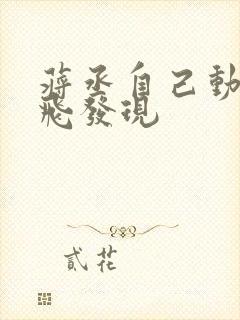 蔣丞自己動
飛發現
貳花